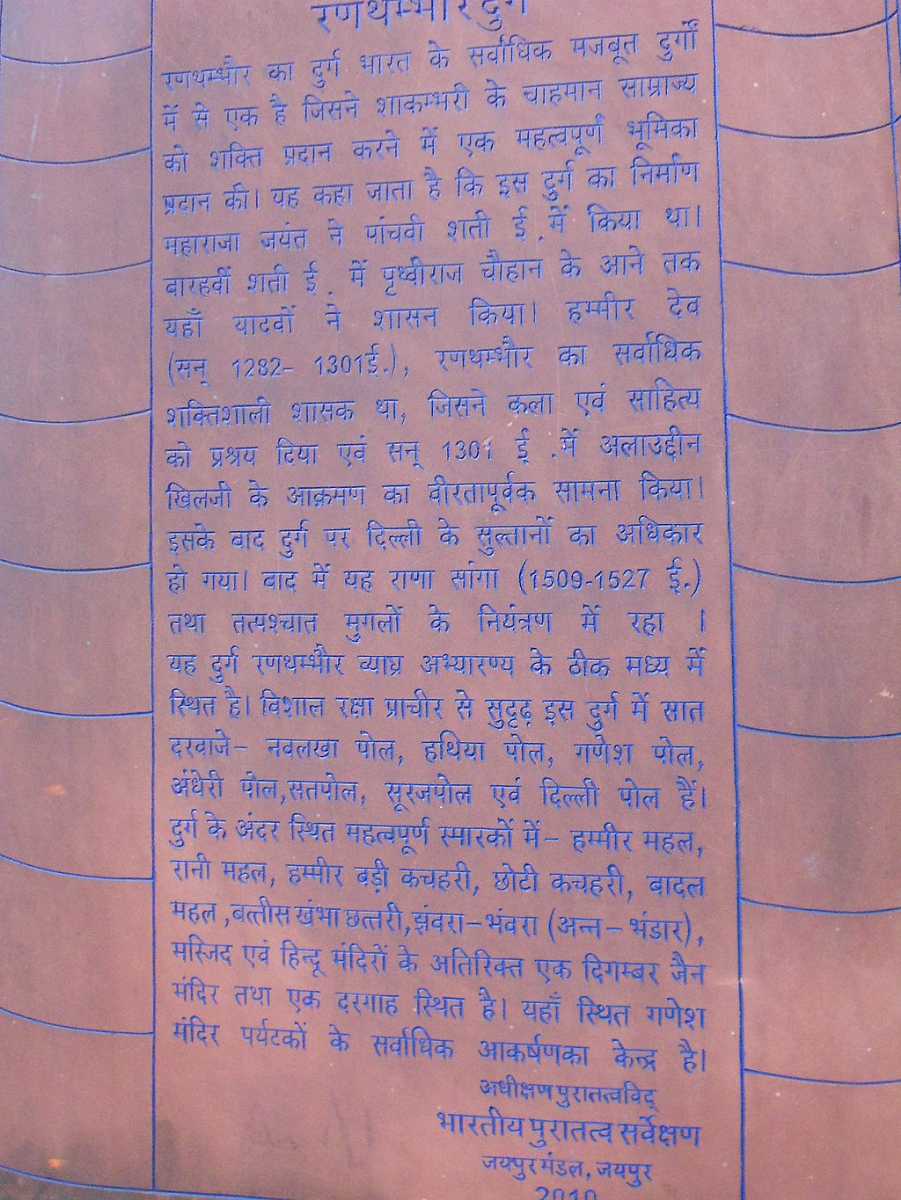 रणथम्भौर दुर्ग
रणथम्भौर का दुर्ग भारत के सर्वाधिक मजबूत दुर्गों
में से एक है जिसने शाकम्भरी के चाहमान साम्राज्य
को शक्ति प्रदान करने में एक महत्वपूर्ण भूमिका
प्रदान की। यह कहा जाता है कि इस दुर्ग का निर्माण
महाराजा जयंत ने पांचवी शती ई. में किया था।
वारहवीं शती ई. में पृथ्वीराज चौहान के आने तक
यहाँ यादवों ने शासन किया। हम्मीर देव
(सन् 1282- 1301ई.), रणथम्भौर का सर्वाधिक
शक्तिशाली शासक था, जिसने कला एवं साहित्य
को प्रश्रय दिया एवं सन् 1301 ई .में अलाउद्दीन
खिलजी के आक्रमण का वीरतापूर्वक सामना किया।
इसके वाद दुर्ग पर दिल्ली के सुल्तानों का अधिकार
हो गया। वाद में यह राणा सांगा (1509-1527 ई.)
तथा तत्पश्चात मुगलों के नियंत्रण में रहा ।
यह दुर्ग रणथम्भौर व्याघ्र अभ्यारण्य के ठीक मध्य में
स्थित है। विशाल रक्षा प्राचीर से सुदृढ़ इस दुर्ग में सात
दरवाजे- नवलखा पोल, हथिया पोल, गणेश पोल,
अंधेरी पोल,सतपोल, सूरजपोल एवं दिल्ली पोल हैं।
दुर्ग के अंदर स्थित महत्वपूर्ण स्मारकों में- हम्मीर महल,
रानी महल, हम्मीर बड़ी कचहरी, छोटी कचहरी, बादल
महल ,बत्तीस खंभा छत्तरी,झंवरा-भंवरा (अन्न-भंडार),
मस्जिद एवं हिन्दू मंदिरों के अतिरिक्त एक दिगम्बर जैन
मंदिर तथा एक दरगाह स्थित है। यहाँ स्थित गणेश
मंदिर पर्यटकों के सर्वाधिक आकर्षणका केन्द्र है।
अधीक्षण पुरातत्वविद्
भारतीय पुरातत्व सर्वेक्षण
जयपुर मंडल, जयपुर
2010